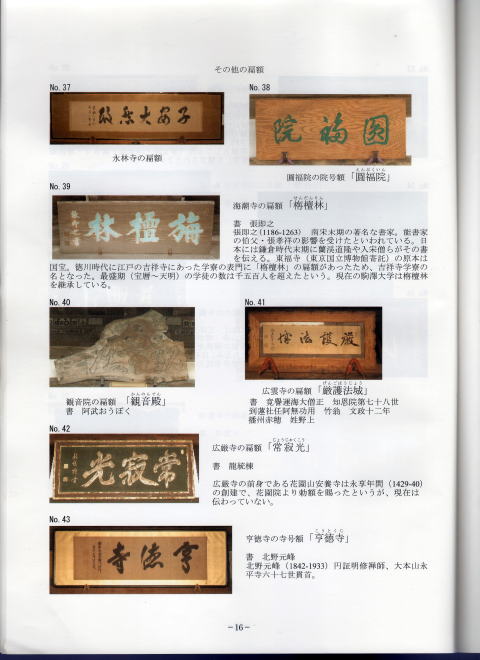 その他の扁額
No.37
永林寺の扁額
No.38
圓福院
えんぷくいん
圓福院の院号額「圓福院」
No.39
栴檀林
せんだんりん
海潮寺の扁額「栴檀林」
書 張即之
張即之(1186-1263) 南宋末期の著名な書家。能書家
の伯父・張孝祥の影響を受けたといわれている。日
本には鎌倉時代末期に蘭渓道隆や入宋僧らがその書
を伝える。東福寺(東京国立博物館寄託)の原本は
国宝。徳川時代に江戸の吉祥寺にあった学寮の表門に「栴檀林」の扁額があったため、吉祥寺学寮の
名となった。最盛期(宝暦~天明)の学徒の数は千五百人を超えたという。現在の駒澤大学は栴檀林
を継承している。
No.40
かんのんでん
観音院の扁額「観音殿」
書 阿武おうぼく
No.41
厳護法城
げんごほうじょう
広雲寺の扁額「厳護法城」
書 竟譽連海大僧正 知恩院第七十八世
到蓮社任阿無功用 竹翁 文政十二年
播州赤穂 姓野上
No.42
常寂光
じょうじゃくこう
広厳寺の扁額「常寂光」
書 龍統棟
広厳寺の前身である花園山安養寺は永享年間(1429-40)
の創建で、花園院より勅額を賜ったというが、現在は
伝わっていない。
No.43
亨徳寺
こうとくじ
亨徳寺の寺号額「亨徳寺」
書 北野元峰
北野元峰(1842-1933)円証明修禅師、大本山永
平寺六十七世貫首。
-16-